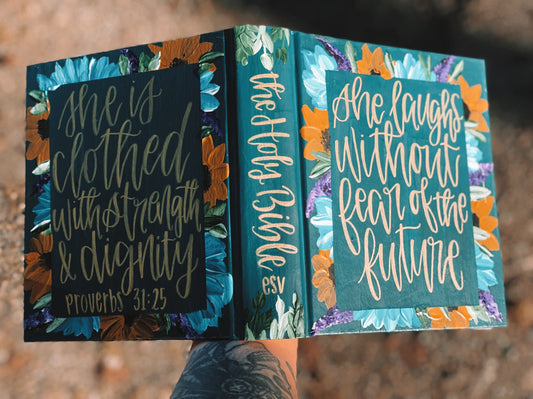 she is
clothed
with strength
& dignity
proverbs 31:25
the Holy Bible
esv
she laughs
without
fear of the
future